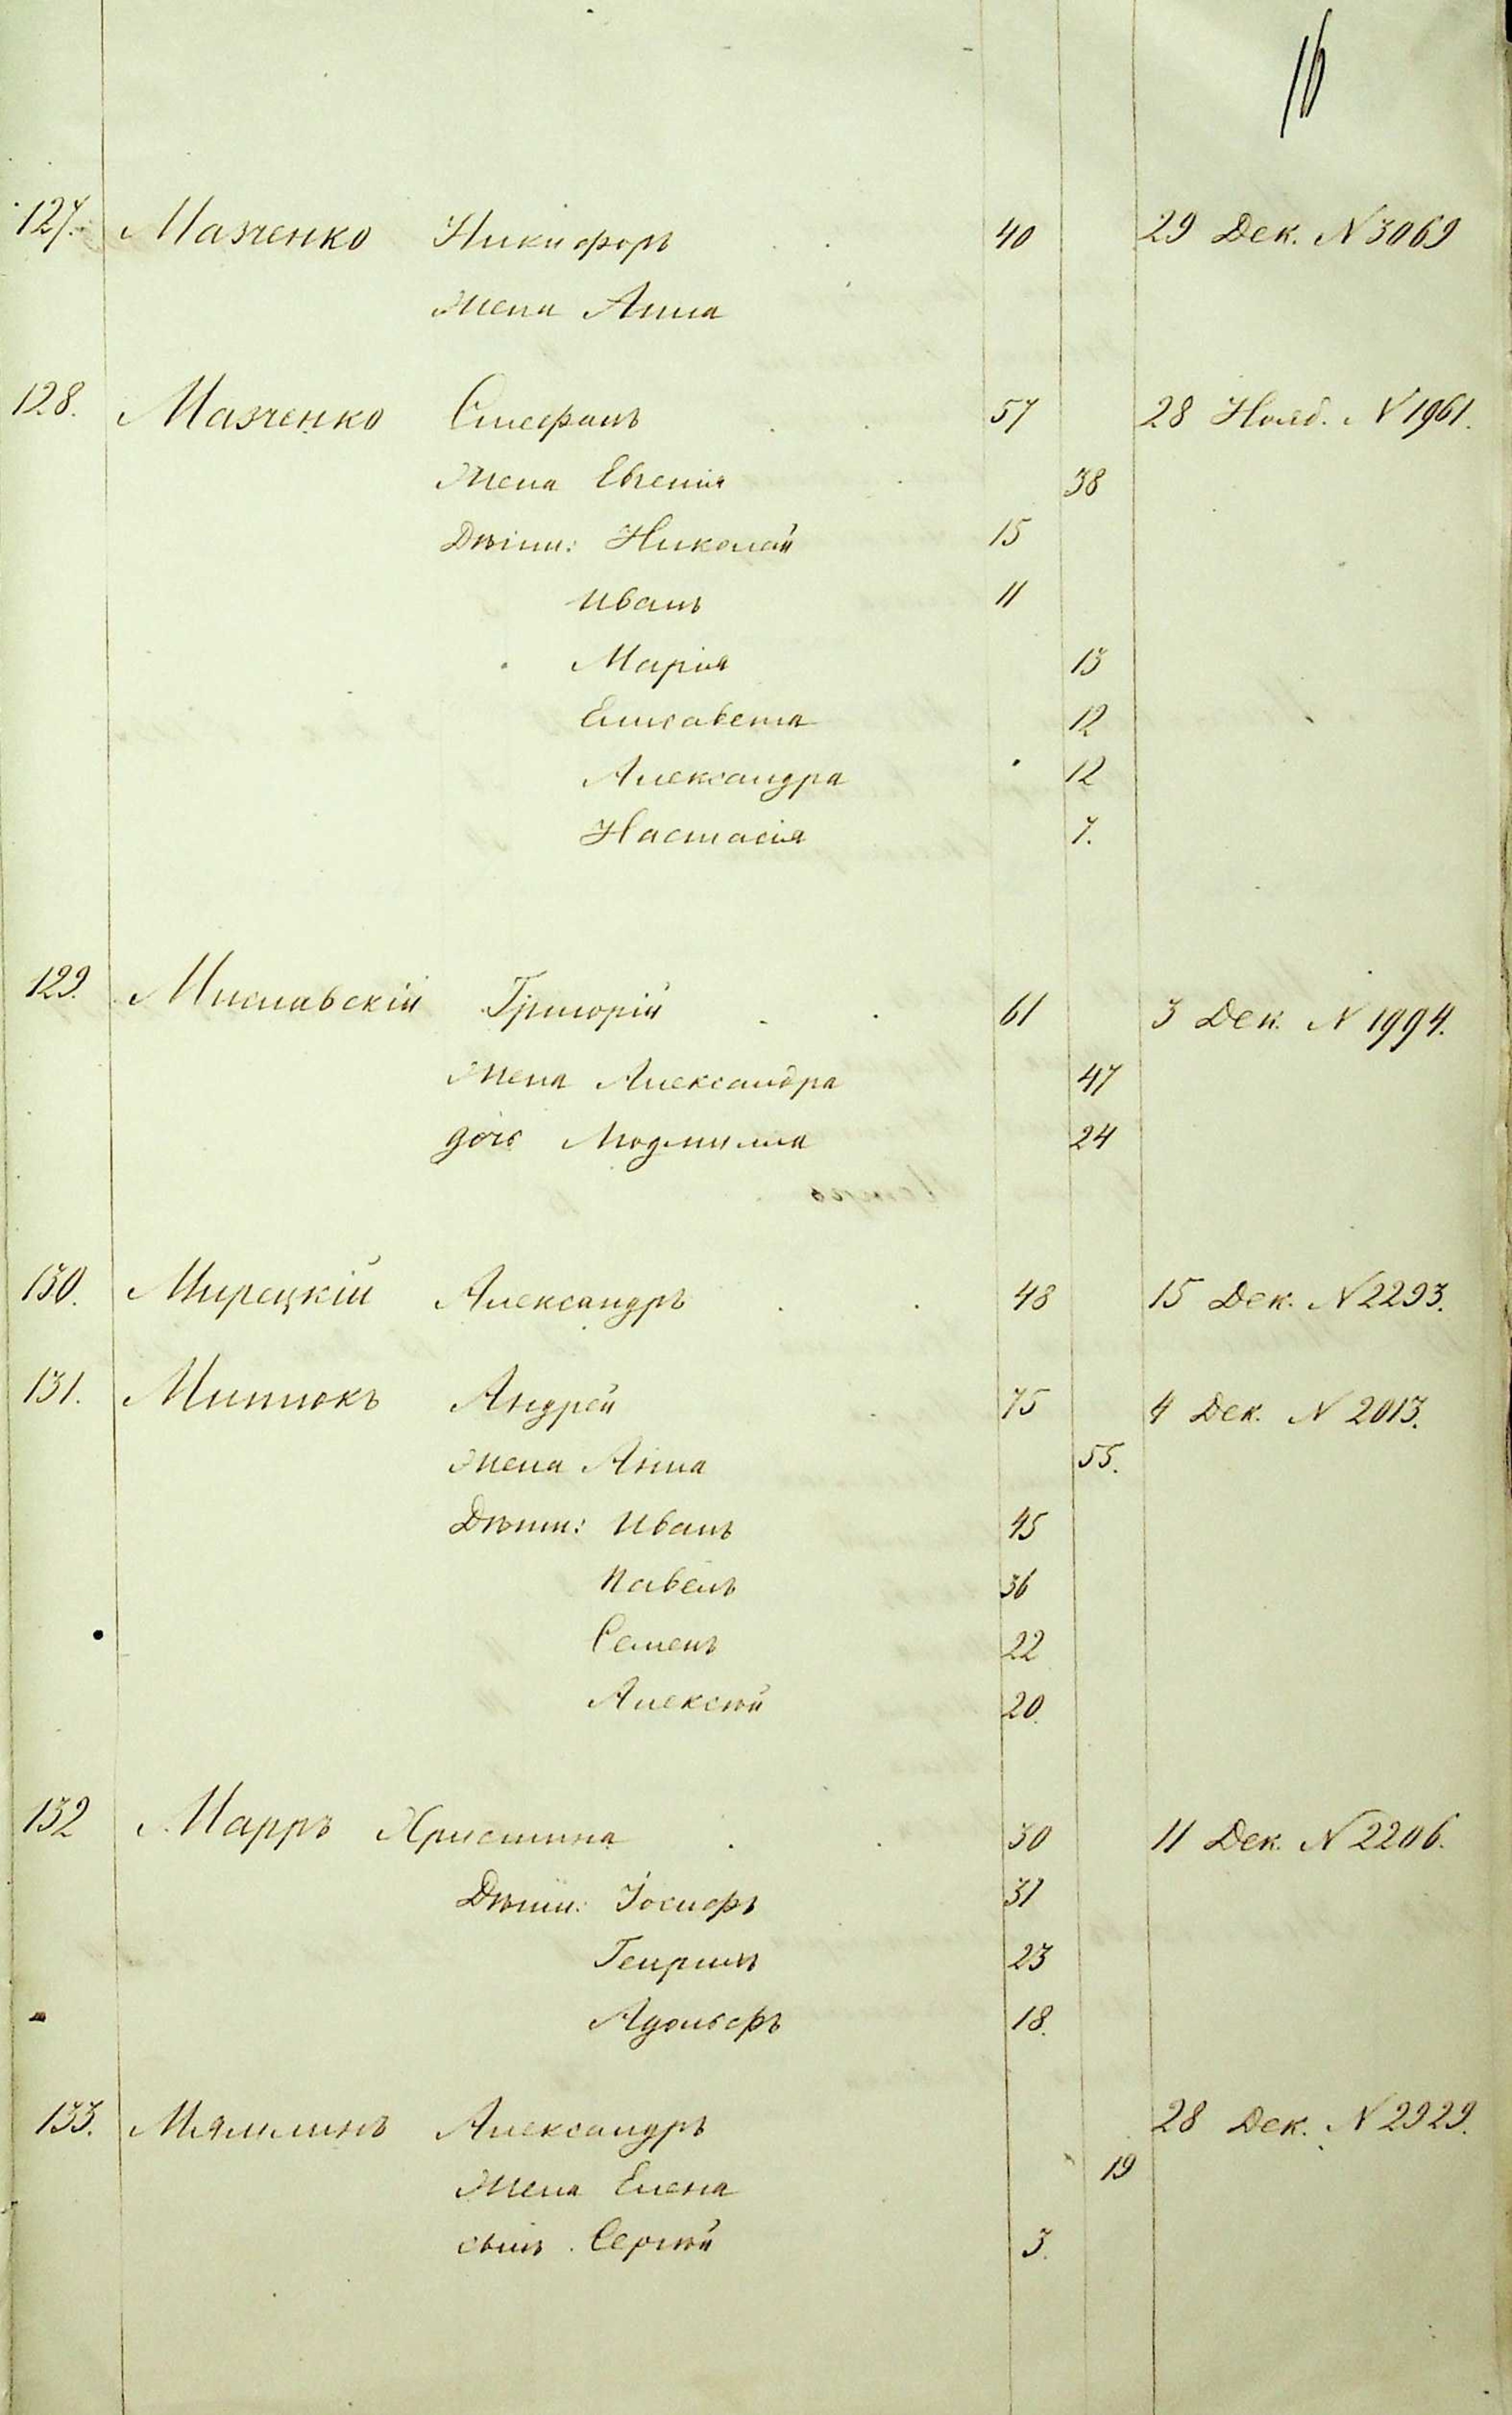 16
127. Мазченко Никифоръ 40 29 Дек. N 3069
жена Анна
128. Мазченко Стефанъ 57 28 Нояб. N 1961.
Жена Евгенія 38
Дѣти: Николай 15
Иванъ 11
Марія 13
Елисавета 12
Александра 12
Настасія 7.
129. Миславскій Григорій 61 3 Дек. N 1994.
Жена Александра 47
дочь Людмилла 24
130. Мирецкій Александръ 48 15 Дек. N 2293.
131. Митюкъ Андрей 75 4 Дек. N 2013.
Жена Анна 55.
Дѣти: Иванъ 45
Павелъ 36
Семенъ 22
Алексѣй 20.
132 Марръ Христина 30 11 Дек. N 2206.
Дѣти: Іосифъ 31
Генрихъ 23
Адольфъ 18.
133. Александръ 28 Дек. N 2929.
Жена Елена 19
сынъ Сергѣй 3.